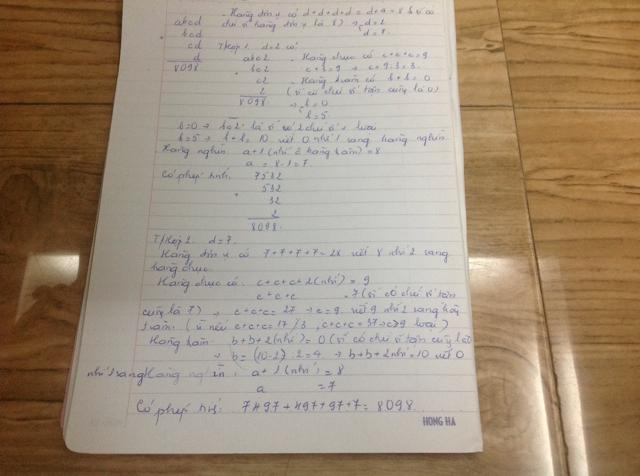 - Hàng đơn vị có d+d+d+d = d×4 = 8 (vì có
abcd chữ số hàng đơn vị là 8) → d=2
bcd d=7.
cd T/hợp 1. d=2 có
d abc2 - Hàng chục có c+c+c=9
8098 bc2 c×3=9 → c=9:3=3.
c2 - Hàng trăm có b+b=0
2 (vì có chữ số tận cùng là 0)
8098. → b=0
b=5.
b=0 → bc2 là số có 2 chữ số → loại
b=5 → b+b=10 viết 0 nhớ 1 sang hàng nghìn
Hàng nghìn a+1 (nhớ ở hàng trăm) = 8
a = 8-1=7.
Có phép tính. 7532
532
32
2
8098.
T/hợp 2. d=7.
Hàng đơn vị có 7+7+7+7=28 viết 8 nhớ 2 sang
hàng chục
Hàng chục có: c+c+c+2(nhớ) = 9
c+c+c = 7 (vì có chữ số tận
cùng là 7) → c+c+c=27 → c=9. viết 9 nhớ 2 sang hàng
trăm. (vì nếu c+c+c=17 /3, c+c+c=37→c>9 loại)
Hàng trăm b+b+2(nhớ) = 0 (vì có chữ số tận cùng là 0)
→ b=(10-2):2=4 → b+b+2nhớ=10 viết 0
nhớ 1 sang Hàng nghìn: a+1(nhớ)=8
a =7
Có phép tính: 7497+497+97+7=8098.
HONG HA